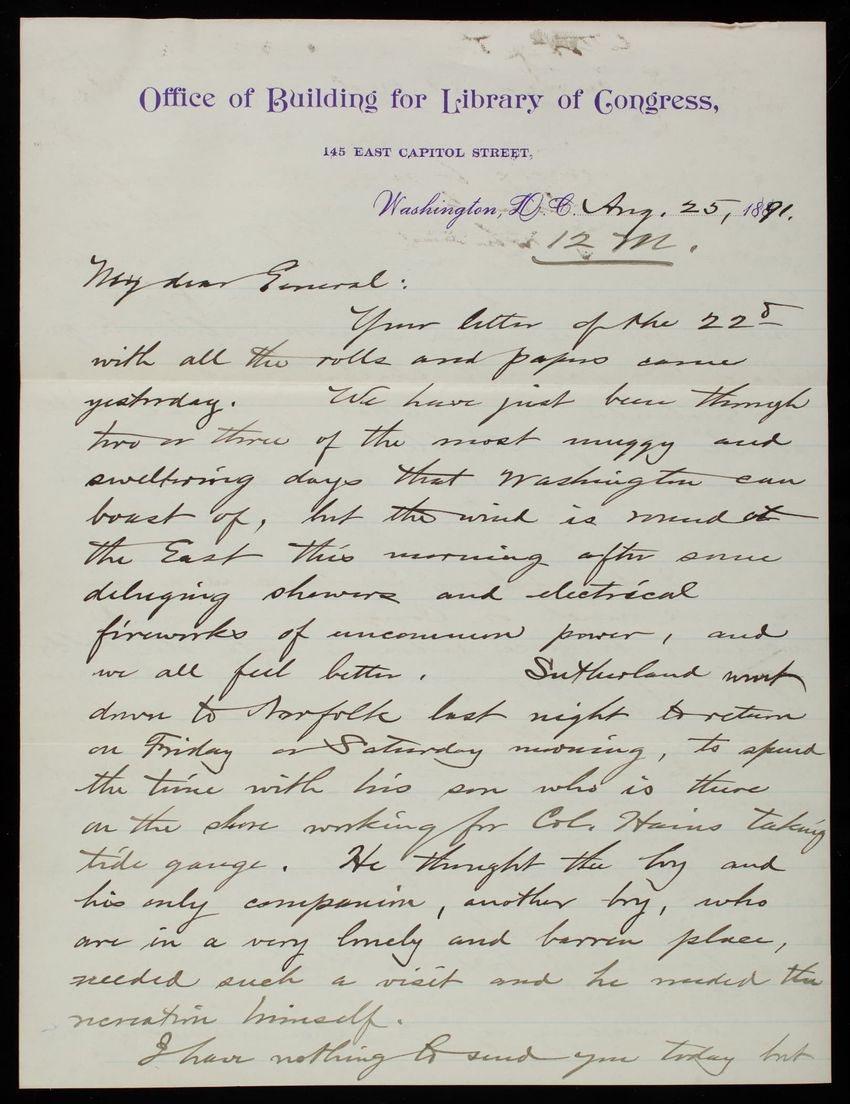 Office of Building for Library of Congress,
145 EAST CAPITOL STREET,
Washington, D.C. Aug. 25, 1891.
12 M.
My dear General:
Your letter of the 22d
with all the rolls and papers came
yesterday. We have just been through
two or three of the most muggy and
sweltering days that Washington can
boast of, but the wind is round at
the East this morning after some
deluging showers and electrical
fireworks of uncommon power, and
we all feel better. Sutherland went
down to Norfolk last night to return
on Friday or Saturday morning, to spend
the time with his son who is there
on the shore working for Col. Hains taking
tide gauge. He thought the boy and
his only companion, another boy, who
are in a very lonely and barren place,
needed such a visit and he needed the
recreation himself.
I have nothing to send you today but